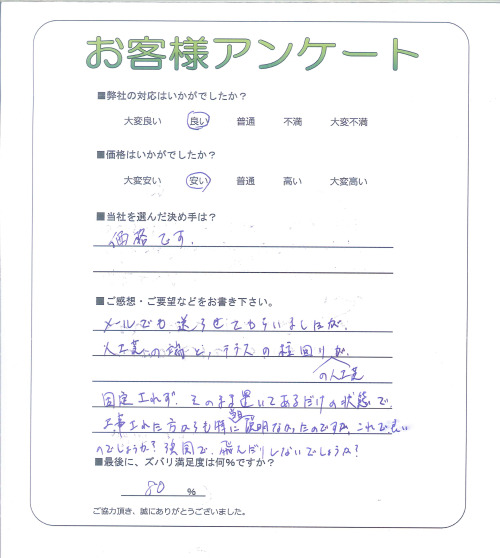 お客様アンケート
■弊社の対応はいかがでしたか?
大変良い 良い 普通 不満 大変不満
■価格はいかがでしたか?
大変安い 安い 普通 高い 大変高い
■当社を選んだ決め手は?
価格です.
■ご感想・ご要望などをお書き下さい。
メールでも送らせてもらいましたが、
人工芝の端と、テラスの柱回りが、
の人工芝
固定されず、そのまま置いてあるだけの状態で、
工事された方からも特に説明なかったのですが、これで良い
のでしょうか?強風で、飛んだりしないでしょうか?
■最後に、ズバリ満足度は何%ですか?
80 %
ご協力頂き、誠にありがとうございました。